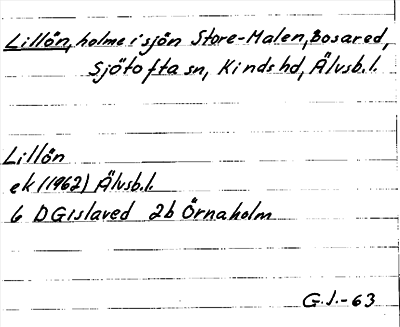 Lillön, holme i sjön Store-Malen, Bosared,
Sjötofta sn, Kinds hd, Älvsb.l.
Lillön
ek (1962) Älvsb.l.
6 D Gislaved 2b Örnaholm
G.J.-63